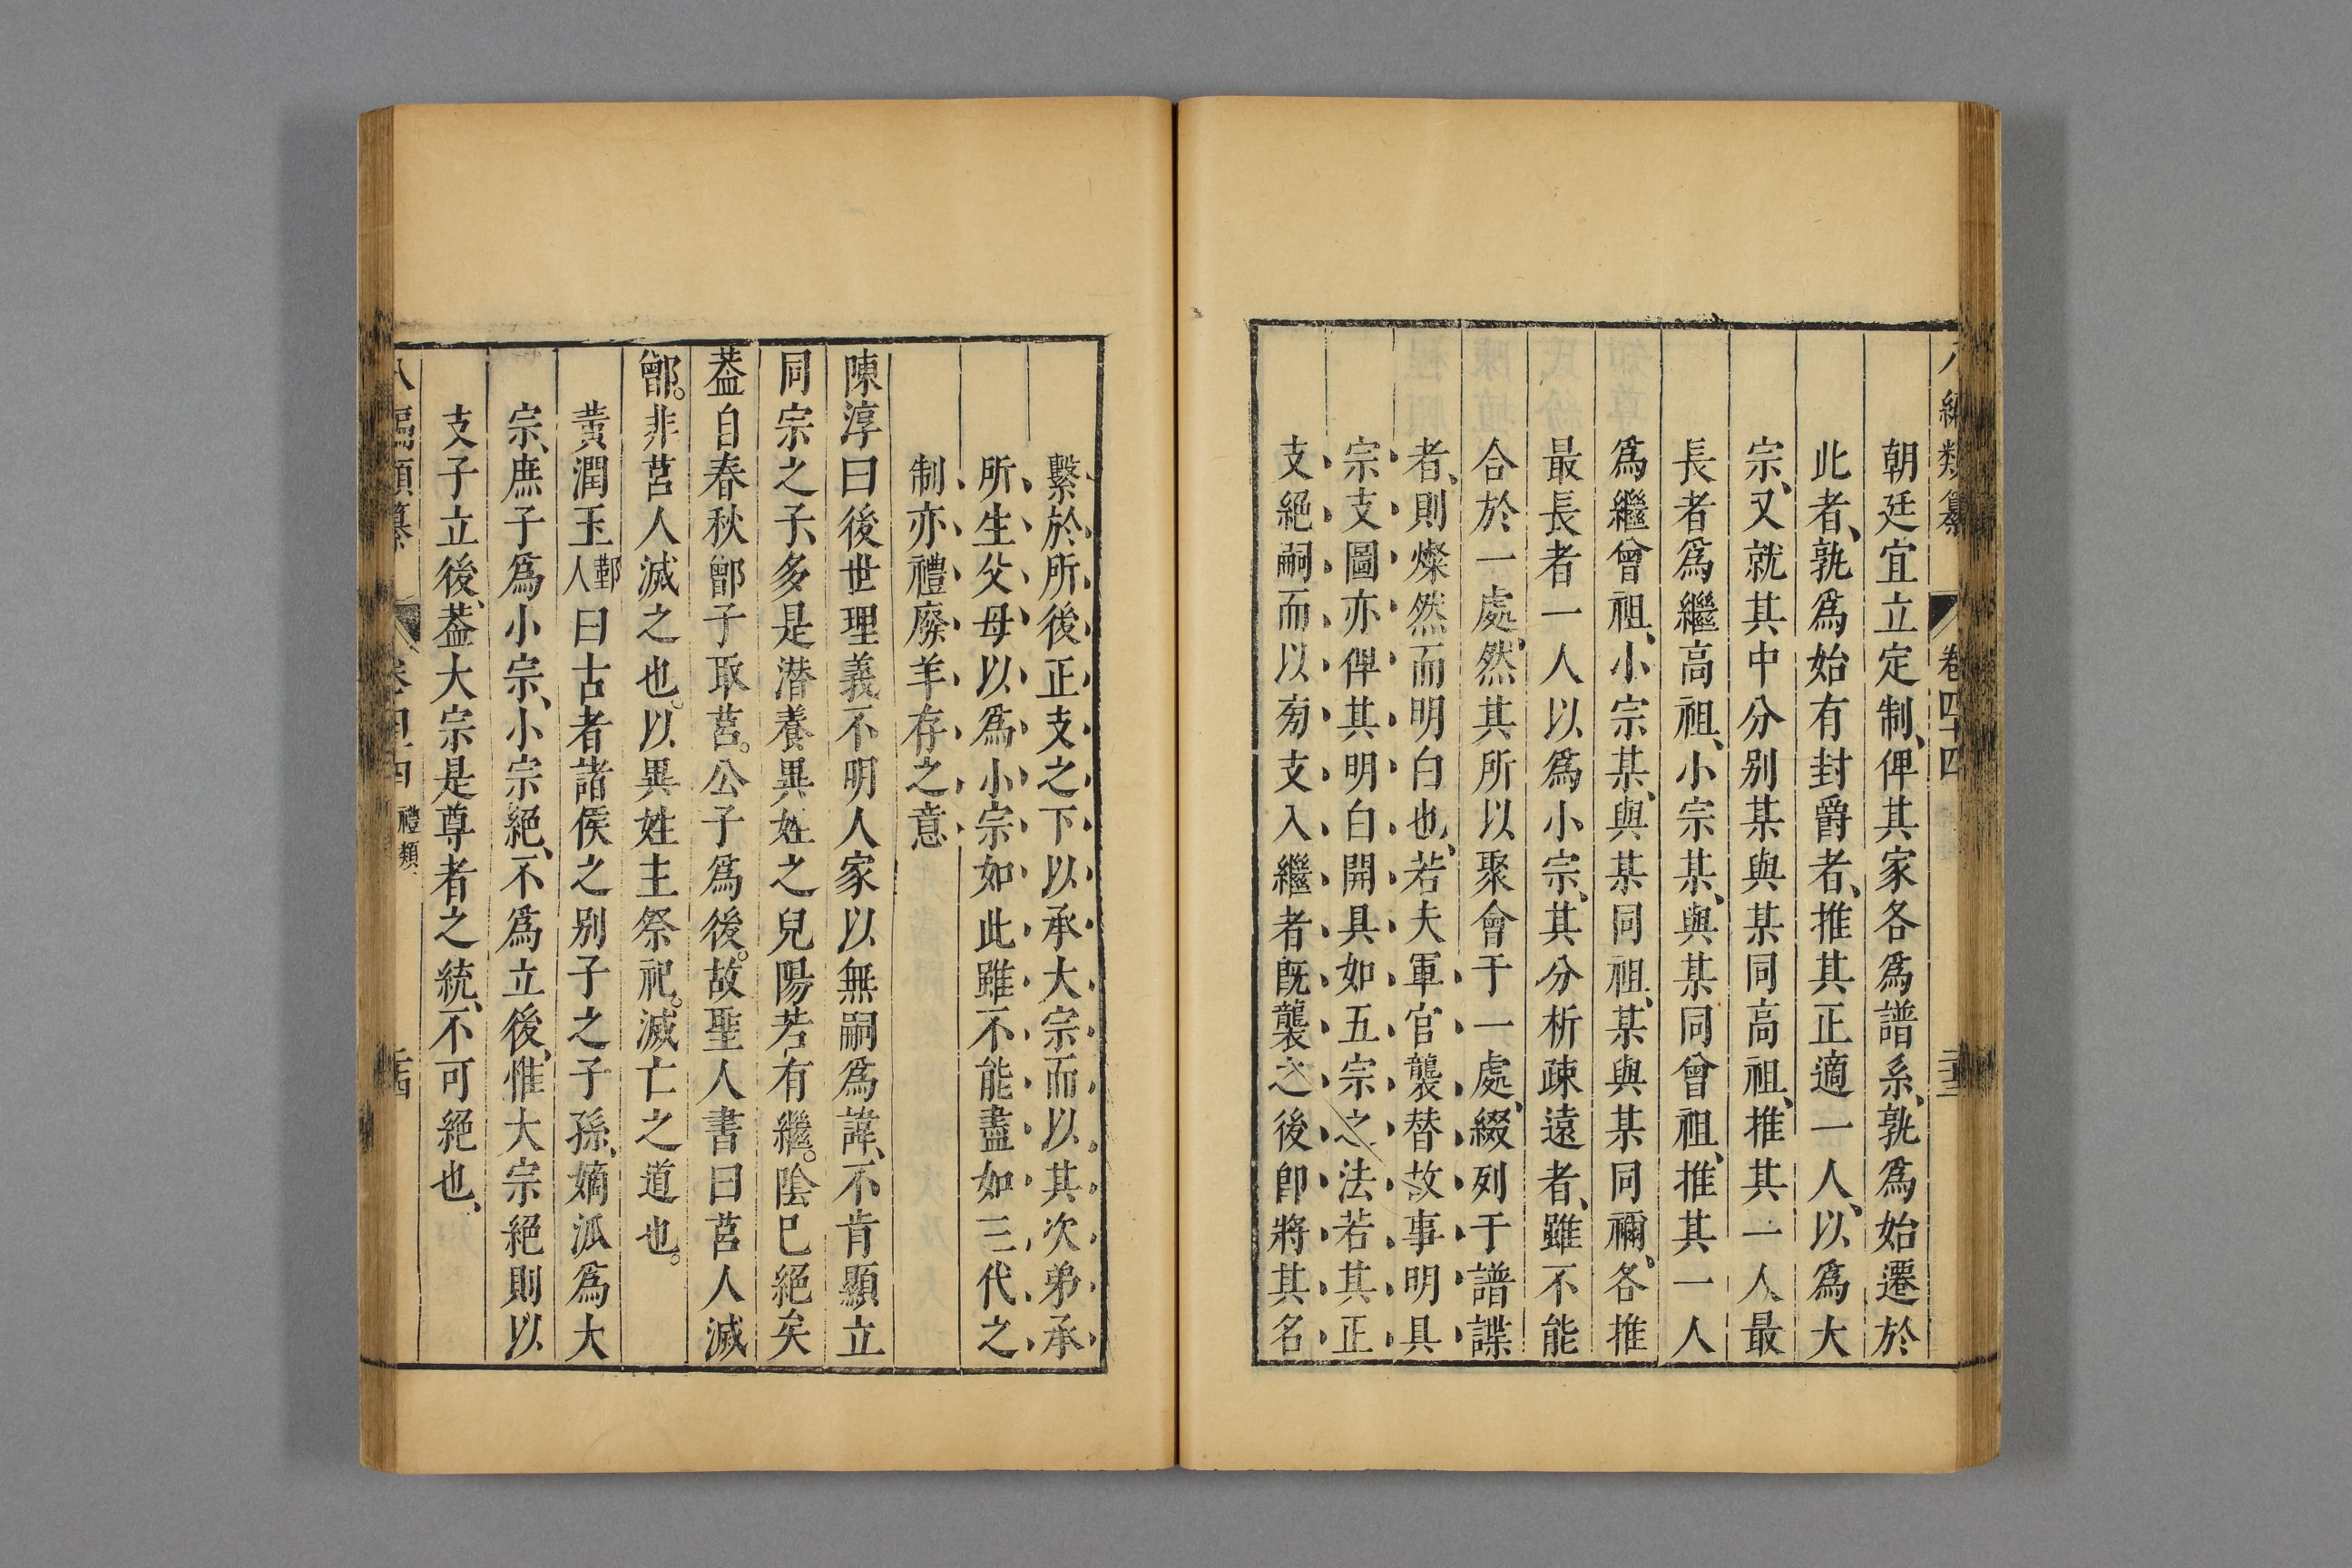 八編類纂 卷四十四
朝廷宜立定制俾其家各爲譜系孰爲始遷於
此者孰爲始有封爵者推其正適一人以爲大
宗又就其中分別某與某同高祖推其一人最
長者爲繼高祖小宗某與某同曾祖推其一人
爲繼曾祖小宗某與某同祖某與某同禰各推
最長者一人以爲小宗其分析疎遠者雖不能
合於一處然其所以聚會于一處綴列于譜諜
者則燦然而明白也若夫軍官襲替故事明具
宗支圖亦俾其明白開具如五宗之法若其正
支絕嗣而以旁支入繼者旣襲之後卽將其名
繫於所後正支之下以承大宗而以其次弟承
所生父母以爲小宗如此雖不能盡如三代之
制亦禮廢羊存之意
陳淳曰後世理義不明人家以無嗣爲諱不肯顯立
同宗之子多是潜養異姓之兒陽若有繼陰巳絕矣
葢自春秋鄫子取莒公子爲後故聖人書曰莒人滅
鄫非莒人滅之也以異姓主祭祀滅亡之道也
黃潤玉鄞人曰古者諸侯之別子之子孫嫡派爲大
宗庶子爲小宗小宗絕不爲立後惟大宗絕則以
支子立後葢大宗是尊者之統不可絕也
八編類纂 卷四十四 禮類